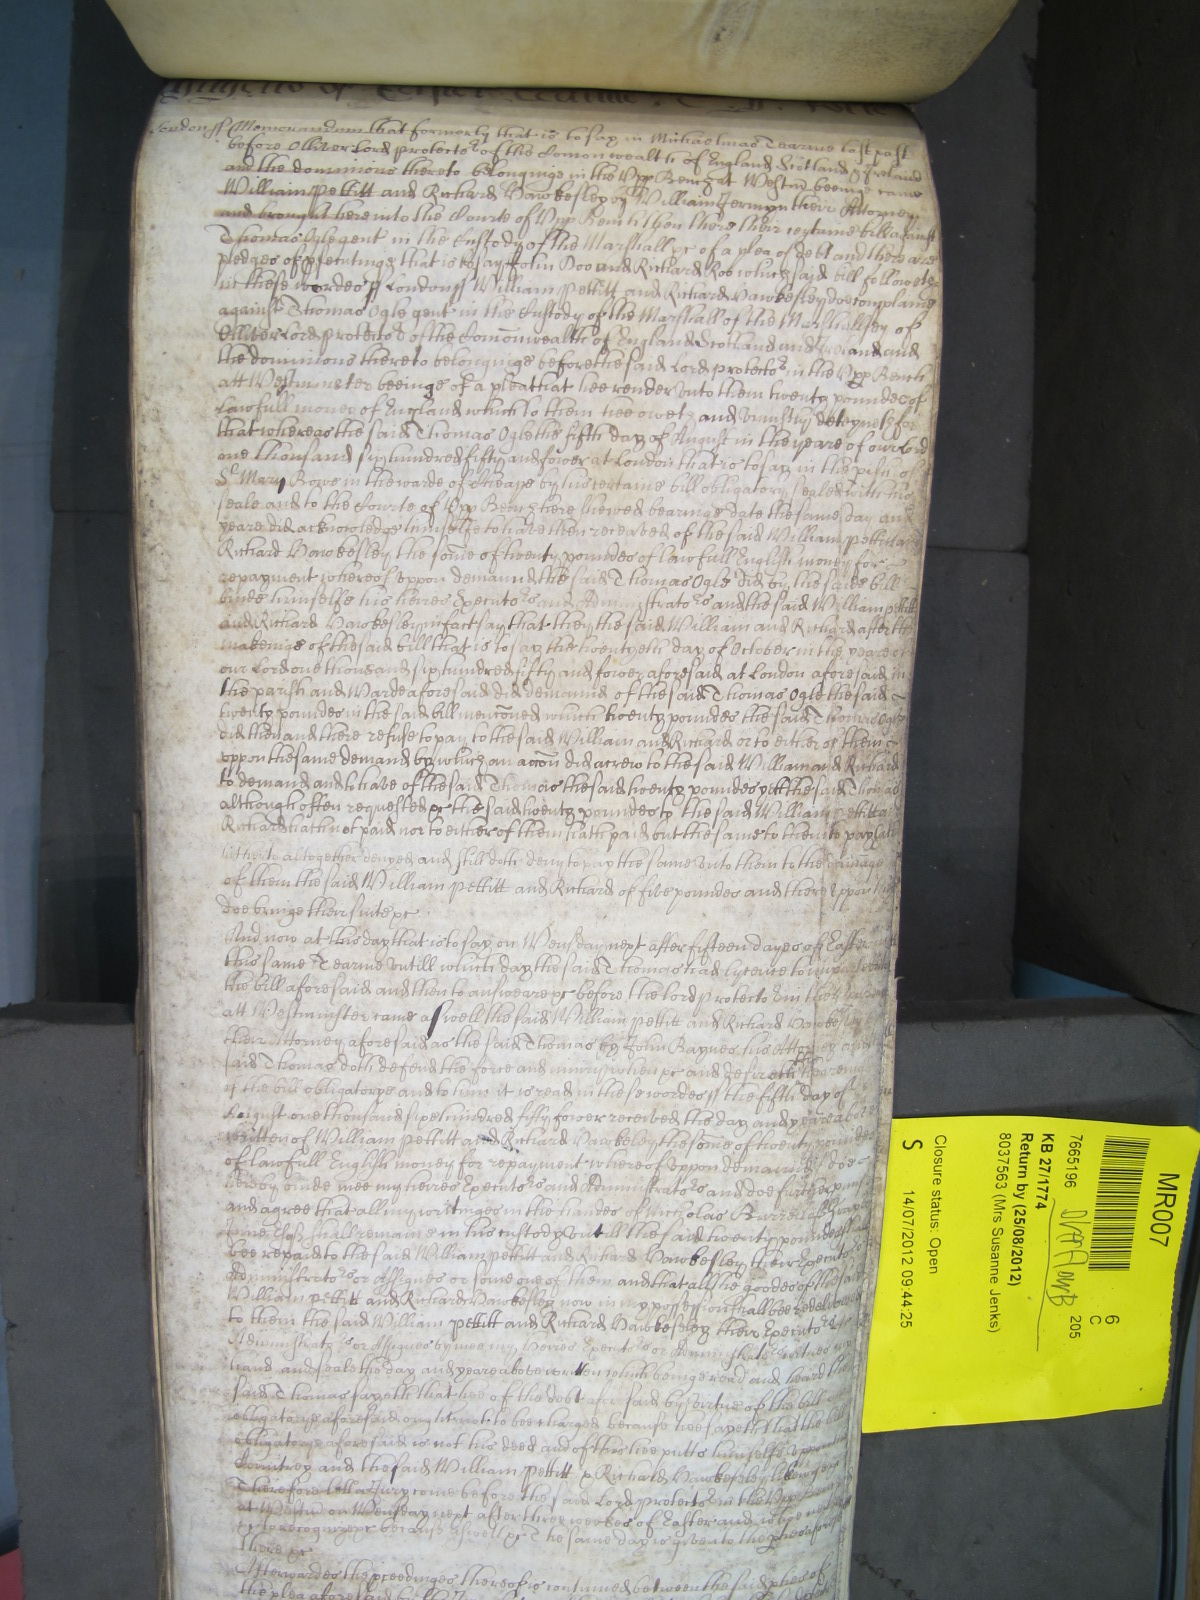 Londonss Memorandum that formerly that is to say in Michaelmas Tearme last past
before Olliver Lord protector of the Comonwealth of England Scotland & Ireland
and the dominions thereto belonginge in the Upp Bench at Westm beeinge came
William Pettitt and Richard Hawkesley by William Jermyn their Attorney
and brought here into the Courte of Upp Bench then there their certaine bill against
Thomas Ogle gent in the Custody of the Marshall &c of a plea of debt and there are
pledges of psecutinge that is to say John Doo and Richard Roo which said bill followeth
in these wordes ss Londonss William Pettitt and Richard Hawkesley doe complaine
against Thomas Ogle gent in the Custody of the Marshall of the Marshallsey of
Olliver Lord Protector of the Comonwealth of England Scotland and Ireland and
the dominions thereto belonginge before the said Lord protector in the Upp Bench
att Westminster beeinge of a plea that hee render unto them twenty poundes of
Lawfull money of England which to them hee oweth and uniustly deteyneth for
that whereas the said Thomas Ogle the fifth day of August in the yeare of our Lord
one thousand six hundred fifty and fower at London that is to say in the pish of
St Mary Bowe in the warde of Cheape by his certaine bill obligatory sealed with his
seale and to the Courte of Upp Bench here shewed bearinge date the same day and
yeare did acknowledge himselfe to have then received of the said William Pettitt and
Richard Hawkesley the some of twenty poundes of lawfull English money for
repayment whereof uppon demannd the said Thomas Ogle did by the saide bill
binde himselfe his heires Executors and Administrators and the said William Pettitt
and Richard Hawkesley in fact say that they the said William and Richard after the
makeinge of the said bill that is to say the twentyeth day of October in the yeare of
our Lord one thousand six hundred fifty and fower aforesaid at London aforesaid in
the parish and Warde aforesaid did demannd of the said Thomas Ogle the said
twenty poundes in the said bill menconed which twenty poundes the said Thomas Ogle
did then and there refuse to pay to the said William and Richard or to either of them
uppon the same demand by which an accon did accrew to the said William and Richard
to demand and to have of the said Thomas the said twenty poundes yett the said Thomas
although often requested &c the said twenty poundes to the said William Pettitt and
Richard hath not paid nor to either of them hath paid but the same to them to pay hath
hitherto altogether denyed and still doth deny to pay the same unto them to the damage
of them the said William Pettitt and Richard of five poundes and thereuppon they
doe bringe their suite &c
And now at this day that is to say on Wensday next after fifteen dayes of Easter
this same Tearme untill which day the said Thomas had lycence to imparle unto
the bill aforesaid and then to answeare &c before the Lord protector in the
att Westminster came aswell the said William Pettitt and Richard Hawkesley by
their Attorney aforesaid as the said Thomas by John Raynes his Attorney and the
said Thomas doth defend the force and iniury when &c and desireth the heareinge
of the bill obligatorye and to him it is read in these wordes ss the fifth day of
August one thousand six hundred fifty fower received the day and yeare above
written of William Pettitt and Richard Hawkesley the some of twenty poundes
of lawfull English money for repayment whereof uppon demannd I doe
hereby binde mee my heires Executors and Administrators and doe further
and agree that all my writinges in the handes of Nicholas
shall remaine in his custody untill the said twenty poundes
bee repaid to the said William Pettitt and Richard Hawkesley their Executors
Administrators or Assignes or some one of them and that all the goodes of the said
William Pettitt and Richard Hawkesley now in my possession shall bee redelivered
to them the said William Pettitt and Richard Hawkesley their Executors
Administrators or Assignes by mee my heires Executors or Administrators witnes my
hand and seale the day and yeare above written which beinge read and heard the
said Thomas sayeth that hee of the debt aforesaid by vertue of the bill
obligatorye aforesaid ought not to bee charged because hee sayeth that the bill
obligatorye aforesaid is not his deed and of this hee putts himselfe uppon the
Countrey and the said William Pettitt & Richard Hawkesley likewise
Therefore lett a Jury come before the said Lord protector in the Upp Bench
at Westm on Wensday next after three weekes of Easter and who neither
to recognize &c because aswell &c The same day is given to the pties aforesaid
there &c
Afterwardes the pceedinges thereof is continued betweene the said pties of
the plea aforesaid
MR007
6
C
205
7665196
KB 27/1774
Return by (25/08/2012)
8037563 (Mrs Susanne Jenks)
Closure status: Open
S 14/07/2012 09:44:25